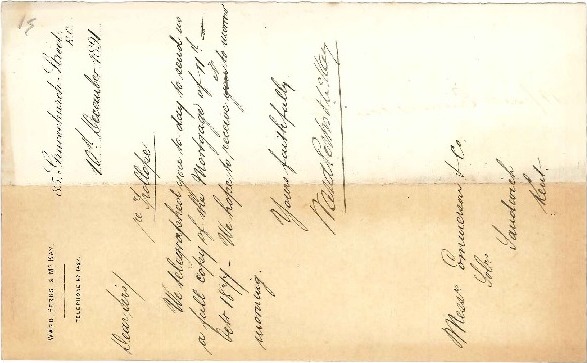 15
WARD PERKS & McKAY.
TELEPHONE No
85, Gracechurch Street,
E.C.
10th December 1891
Dear Sirs,
re Trollope
We telegraphed you to day to send us
a full copy of the Mortgage of 11th
1877 – We hope to receive it to morrow
morning.
Yours faithfully
Ward Perks & McKay
Messrs & Co.
Solrs
Sandwich
Kent.